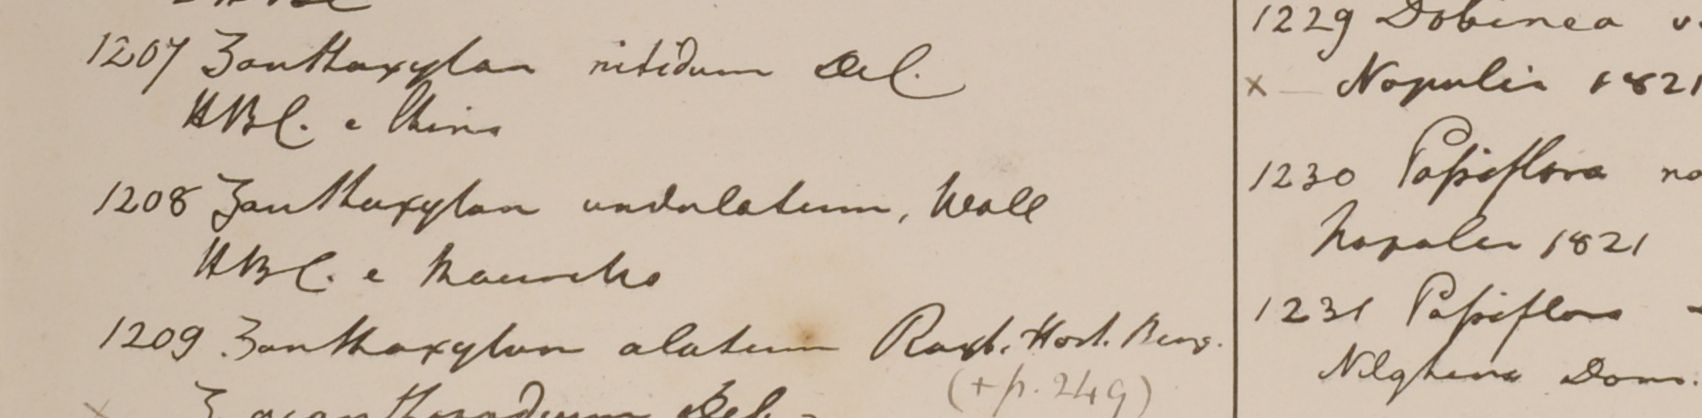 1207 Zanthoxylon nitidum Del.
HBC. e China
1208 Zanthoxylon undulatum, Wall
HBC. e Mauritio
1209 Zanthoxylum alatum Roxb. Hort. Beng.
(+ p. 249)
Z acanthopodium
1229 Dobinea
x Napalia 1821
1230 Passiflora
Napalia 1821
1231 Passiflora
Nilgherry Dom.